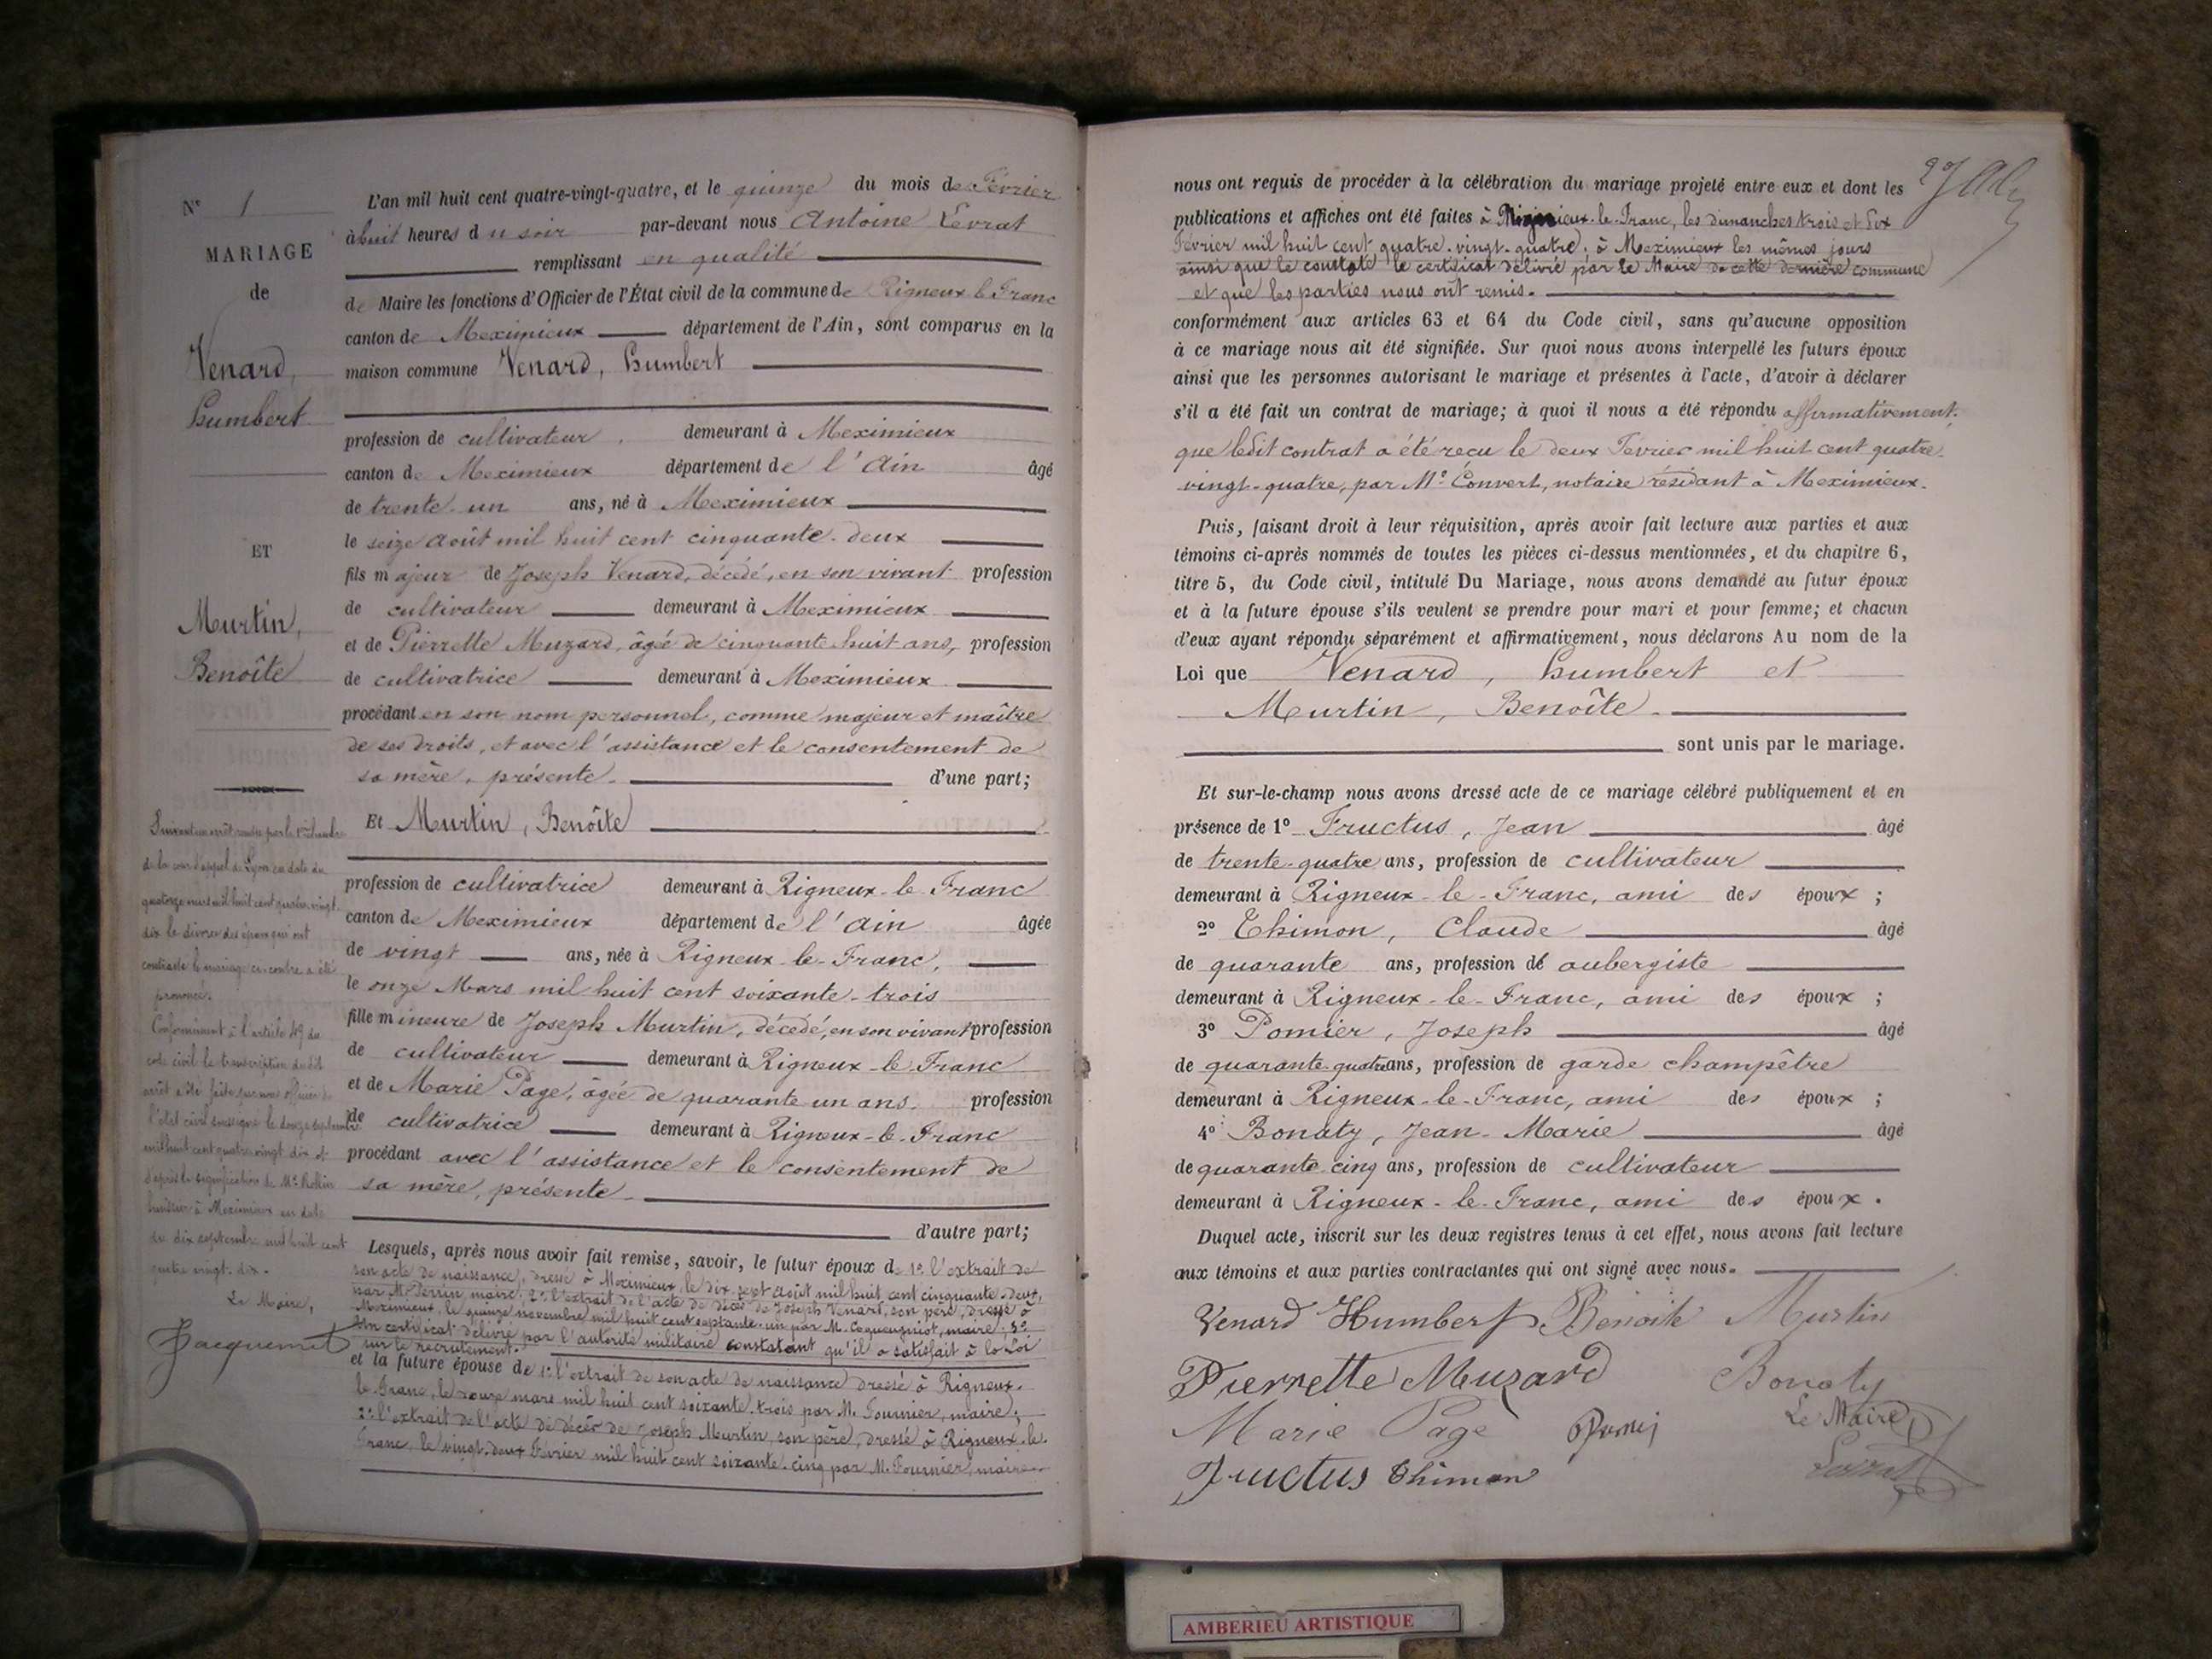 N° 1
MARIAGE
de
Venard,
Humbert
ET
Murtin,
Benoîte
Suivant un arrêt rendu par la 1ère chambre
de la cour d'appel de Lyon en date du
quatorze mars mil huit cent quatre-vingt
dix le divorce des époux qui ont
contracté le mariage ci-contre a été
prononcé.
Conformément à l'article 49 du
code civil la transcription dudit
arrêt a été faite par nous officier de
l'état civil soussigné le douze septembre
mil huit cent quatre vingt dix et
d'après la signification de Me
huissier à Meximieux en date
du dix septembre mil huit cent
quatre vingt. dix.
Le Maire,
Jacquemet
L'an mil huit cent quatre-vingt-quatre, et le quinze du mois de Février
à huit heures du soir par-devant nous Antoine Levrat
remplissant en qualité
de Maire les fonctions d'Officier de l'État civil de la commune de Rigneux le Franc
canton de Meximieux département de l'Ain, sont comparus en la
maison commune Venard, Humbert
profession de cultivateur. demeurant à Meximieux
canton de Meximieux département de l'Ain âgé
de trente-un ans, né à Meximieux
le seize Août mil huit cent cinquante-deux
fils majeur de Joseph Venard, décédé, en son vivant profession
de cultivateur demeurant à Meximieux
et de Pierrette Muzard, âgée de cinquante huit ans, profession
de cultivatrice demeurant à Meximieux
procédant en son nom personnel, comme majeur et maître
de ses droits, et avec l'assistance et le consentement de
sa mère, présente. d'une part;
Et Murtin, Benoîte
profession de cultivatrice demeurant à Rigneux-le-Franc
canton de Meximieux département de l'Ain âgée
de vingt ans, née à Rigneux-le-Franc,
le onze Mars mil huit cent soixante-trois
fille mineure de Joseph Murtin, décédé, en son vivant profession
de cultivateur demeurant à Rigneux-le-Franc
et de Marie Page, âgée de quarante un ans. profession
de cultivatrice demeurant à Rigneux-le-Franc
procédant avec l'assistance et le consentement de
sa mère, présente.
d'autre part;
Lesquels, après nous avoir fait remise, savoir, le futur époux de 1° l'extrait de
son acte de naissance, dressé à Meximieux, le dix sept Août mil huit cent cinquante-deux,
par M. Perrin, maire; 2° l'extrait de l'acte de décès de Joseph Venard, son père, dressé à
Meximieux, le quinze novembre mil huit cent septante-un par M. maire; 3°
Un certificat délivré par l'autorité militaire constatant qu'il a satisfait à la Loi
sur le recrutement.
et la future épouse de 1° l'extrait de son acte de naissance dressé à Rigneux-
le-Franc, le douze mars mil huit cent soixante-trois par M. Fournier, maire;
2° l'extrait de l'acte de décès de Joseph Murtin, son père, dressé à Rigneux-le-
Franc, le vingt-deux Février mil huit cent soixante-cinq par M. Fournier, maire
nous ont requis de procéder à la célébration du mariage projeté entre eux et dont les
publications et affiches ont été faites à Rigneux-le-Franc, les dimanches trois et dix
Février mil huit cent quatre-vingt-quatre; à Meximieux les mêmes jours
ainsi que le constate le certificat délivré par le Maire de cette dernière commune
et que les parties nous ont remis.
conformément aux articles 63 et 64 du Code civil, sans qu'aucune opposition
à ce mariage nous ait été signifiée. Sur quoi nous avons interpellé les futurs époux
ainsi que les personnes autorisant le mariage et présentes à l'acte, d'avoir à déclarer
s'il a été fait un contrat de mariage; à quoi il nous a été répondu affirmativement.
que ledit contrat a été reçu le deux Février mil huit cent quatre-
vingt-quatre, par Me Convert, notaire résidant à Meximieux.
Puis, faisant droit à leur réquisition, après avoir fait lecture aux parties et aux
témoins ci-après nommés de toutes les pièces ci-dessus mentionnées, et du chapitre 6,
titre 5, du Code civil, intitulé Du Mariage, nous avons demandé au futur époux
et à la future épouse s'ils veulent se prendre pour mari et pour femme; et chacun
d'eux ayant répondu séparément et affirmativement, nous déclarons Au nom de la
Loi que Venard, Humbert et
Murtin, Benoîte.
sont unis par le mariage.
Et sur-le-champ nous avons dressé acte de ce mariage célébré publiquement et en
présence de 1° Fructus, Jean âgé
de trente-quatre ans, profession de cultivateur
demeurant à Rigneux-le-Franc, ami des époux;
2° Thimon, Claude âgé
de quarante ans, profession de aubergiste
demeurant à Rigneux-le-Franc, ami des époux;
3° Pomier, Joseph âgé
de quarante quatre ans, profession de garde champêtre
demeurant à Rigneux-le-Franc, ami des époux;
4° Bonaty, Jean-Marie âgé
de quarante cinq ans, profession de cultivateur
demeurant à Rigneux-le-Franc, ami des époux.
Duquel acte, inscrit sur les deux registres tenus à cet effet, nous avons fait lecture
aux témoins et aux parties contractantes qui ont signé avec nous.
Venard Humbert Benoite Murtin
Pierrette Muzard Bonaty
Marie Page Le Maire
Fructus Thimon Levrat
AMBERIEU ARTISTIQUE